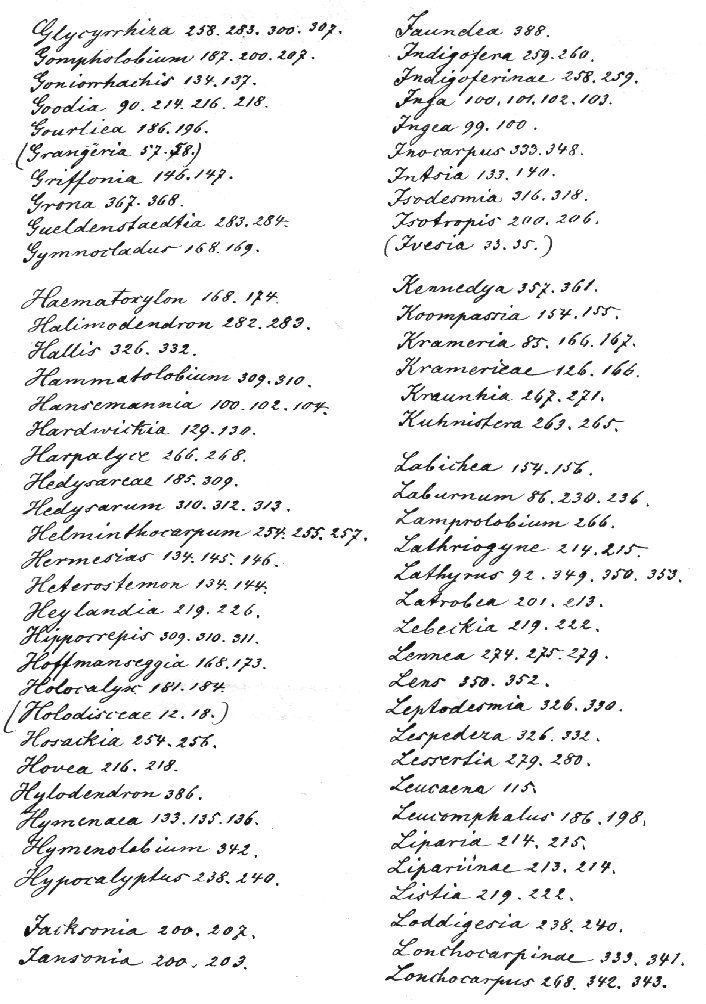 Glycyrrhiza 258. 283. 300. 307.
Gompholobium 187. 200. 207.
Goniorrhachis 134. 137.
Goodia 90. 214. 216. 218.
Gourliea 186. 196.
(Grangeria 57. 58.)
Griffonia 146. 147.
Grona 367. 368.
Gueldenstaedtia 283. 284.
Gymnocladus 168. 169.
Haematoxylon 168. 174.
Halimodendron 282. 283.
Hallis 326. 332.
Hammatolobium 309. 310.
Hansemannia 100. 102. 104.
Hardwickia 129. 130.
Harpalyce 266. 268.
Hedysareae 185. 309.
Hedysarum 310. 312. 313.
Helminthocarpum 254. 255. 257.
Hermesias 134. 145. 146.
Heterostemon 134. 144.
Heylandia 219. 226.
Hippocrepis 309. 310. 311.
Hoffmanseggia 168. 173.
Holocalyx 181. 184.
(Holodisceae 12. 18.)
Hosackia 254. 256.
Hovea 216. 218.
Hylodendron 386.
Hymenaea 133. 135. 136.
Hymenolobium 342.
Hypocalyptus 238. 240.
Jacksonia 200. 207.
Jansonia 200. 203.
Jaundea 388.
Indigofera 259. 260.
Indigoferinae 258. 259.
Inga 100. 101. 102. 103.
Ingea 99. 100.
Inocarpus 333. 348.
Intsia 133. 140.
Isodesmia 316. 318.
Isotropis 200. 206.
(Ivesia 33. 35.)
Kennedya 357. 361.
Koompassia 154. 155.
Krameria 85. 166. 167.
Kramerieae 126. 166.
Kraunhia 267. 271.
Kuhnistera 263. 265.
Labichea 154. 156.
Laburnum 86. 230. 236.
Lamprolobium 266.
Lathriogyne 214. 215.
Lathyrus 92. 349. 350. 353.
Latrobea 201. 213.
Lebeckia 219. 222.
Lennea 274. 275. 279.
Lens 350. 352.
Leptodesmia 326. 330.
Lespedeza 326. 332.
Lessertia 279. 280.
Leucaena 115.
Leucomphalus 186. 198.
Liparia 214. 215.
Lipariinae 213. 214.
Listia 219. 222.
Loddigesia 238. 240.
Lonchocarpinae 333. 341.
Lonchocarpus 268. 342. 343.